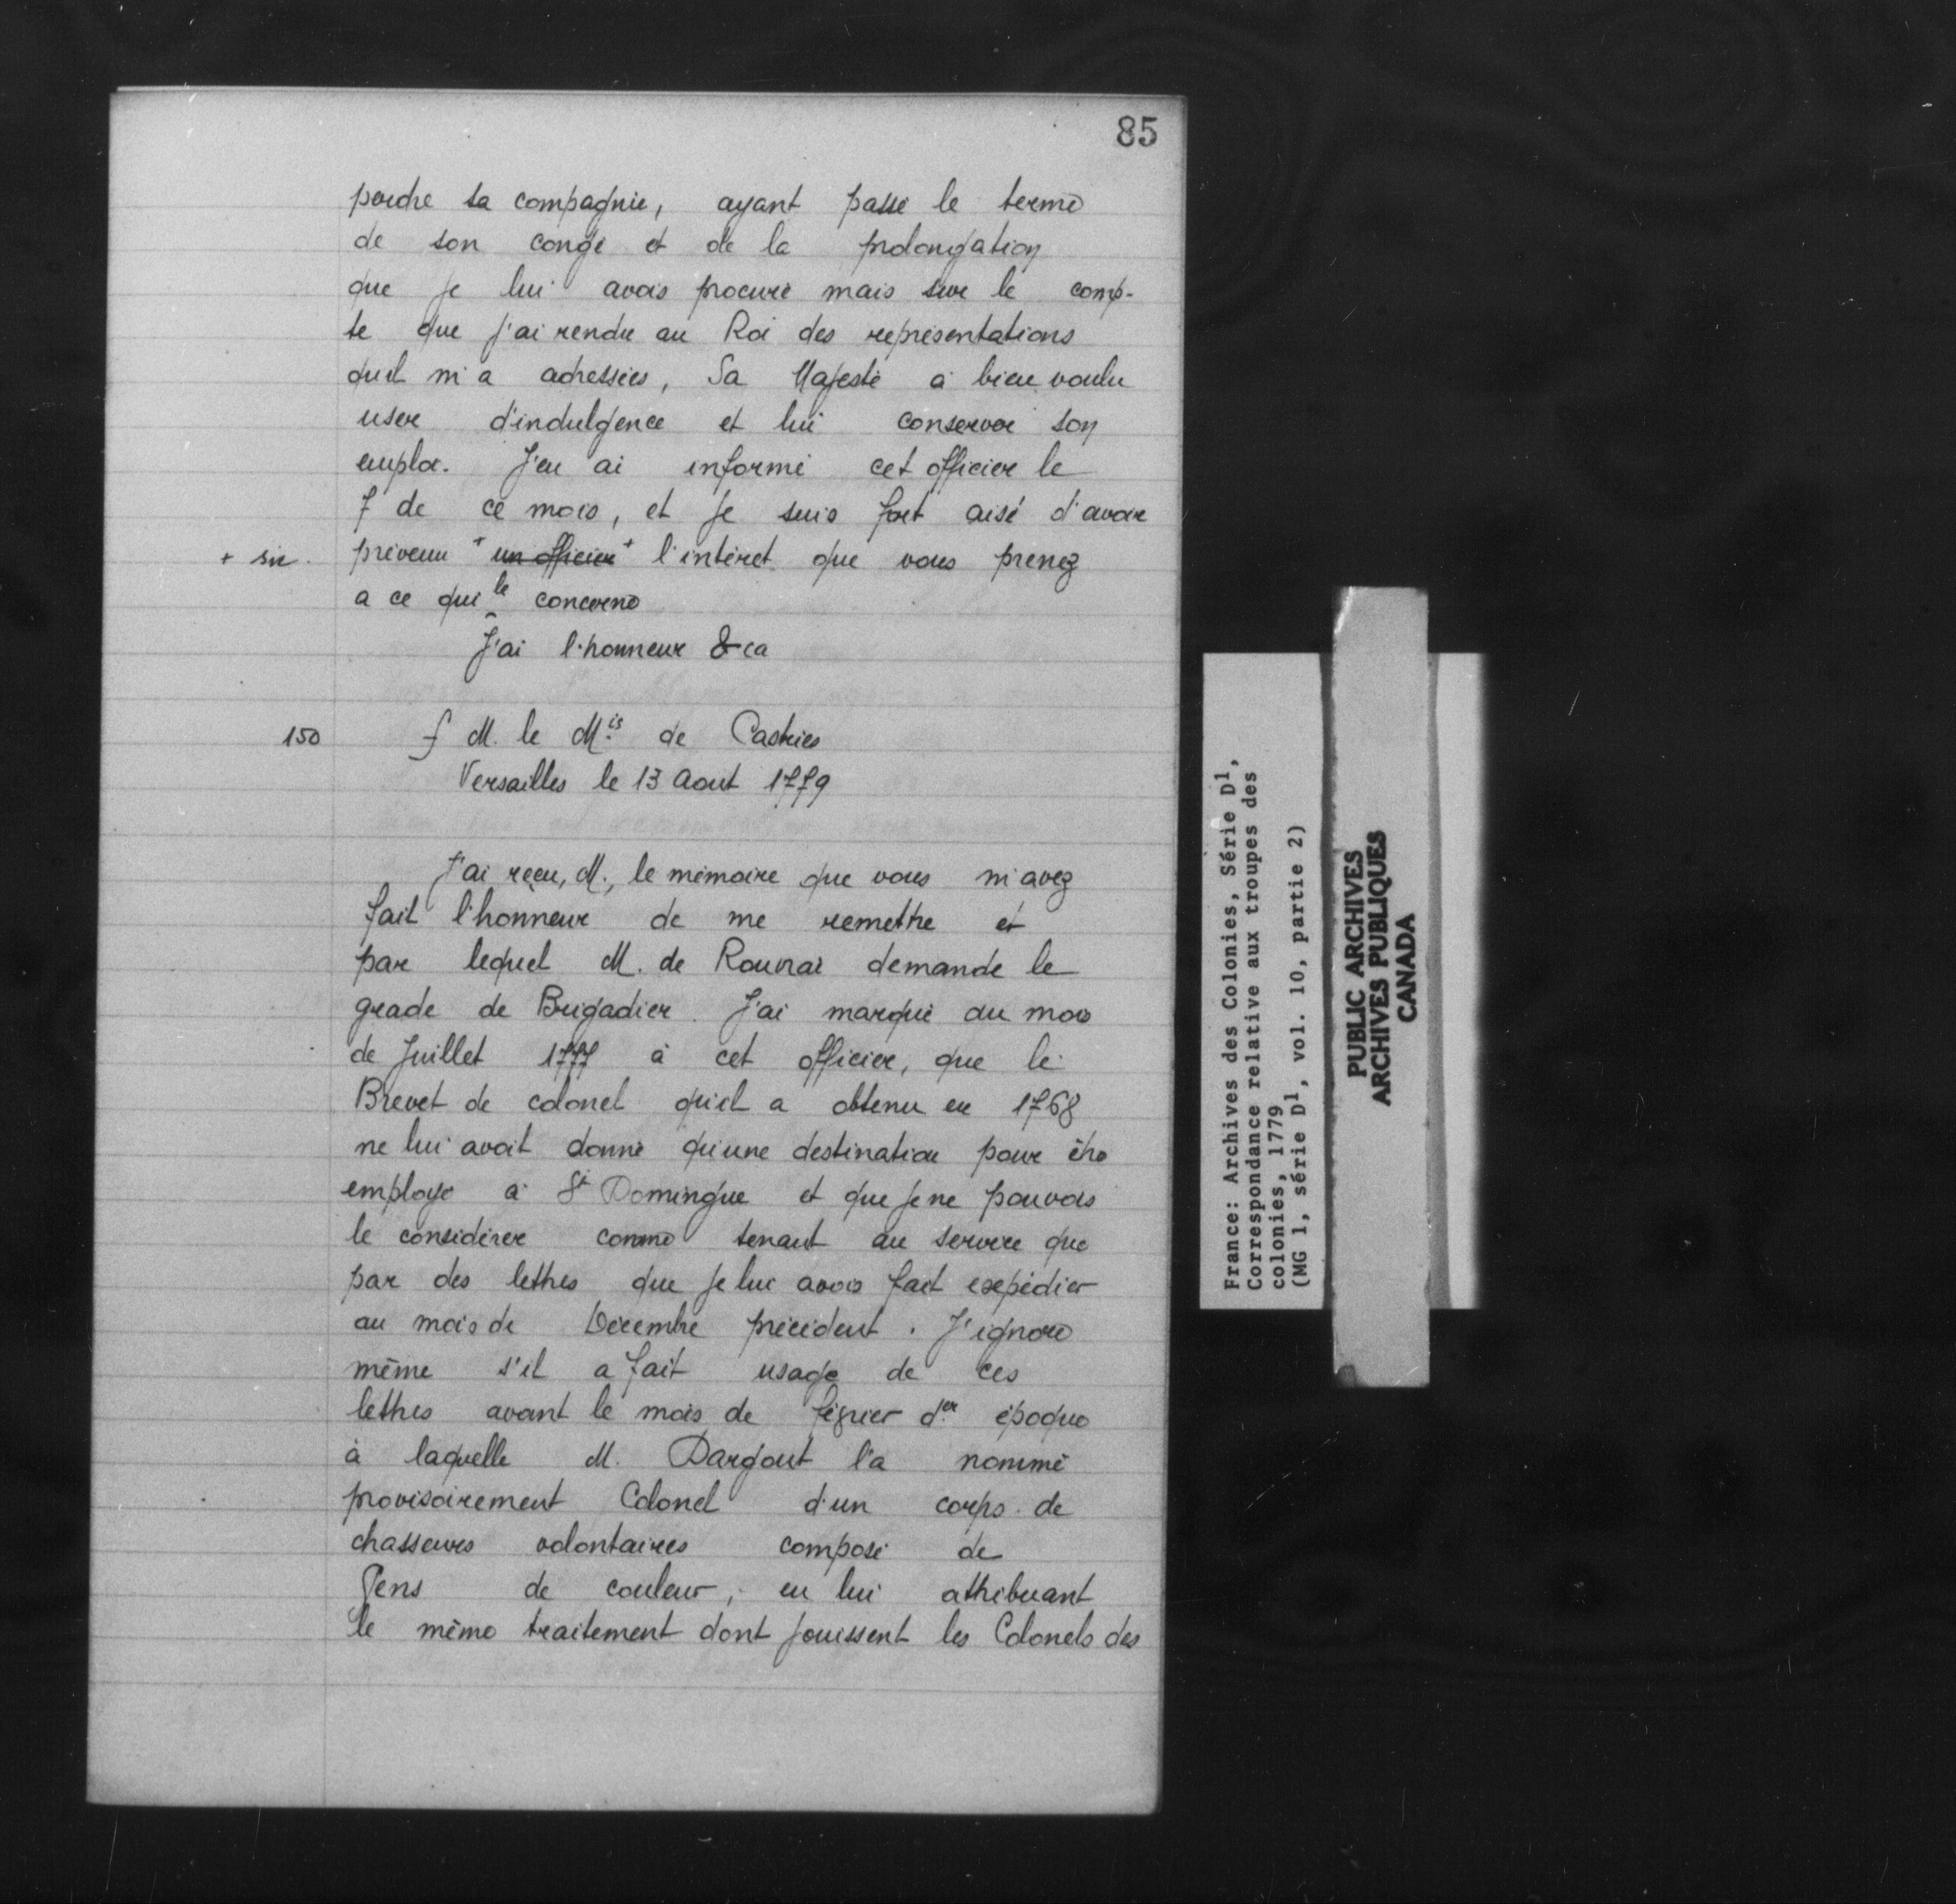 85
perdre sa compagnie, ayant passé le terme
de son congé et de la prolongation
que je lui avois procuré mais sur le comp-
te que j'ai rendu au Roi des représentations
qu'il m'a adressées, Sa Majesté a bien voulu
user d'indulgence et lui conserver son
emploi. J'en ai informé cet officier le
7 de ce mois, et je suis fort aisé d'avoir
+ sic. prévenu + un officier + l'intéret que vous prenez
a ce qui le concerne
J'ai l'honneur &ca
150 f M. le Mis de Castries
Versailles le 13 Aout 1779
J'ai reçu, M., le mémoire que vous m'avez
fait l'honneur de me remettre et
par lequel M. de Rouvrai demande le
grade de Brigadier. J'ai marqué au mois
de Juillet 1777 à cet officier, que le
Brevet de colonel qu'il a obtenu en 1768
ne lui avoit donné qu'une destination pour être
employé à St Domingue et que je ne pouvois
le considérer comme tenant au service que
par des lettres que je lui avois fait expédier
au mois de Décembre précédent. J'ignore
même s'il a fait usage de ces
lettres avant le mois de février der époque
à laquelle M. Dargout l'a nommé
provisoirement Colonel d'un corps de
chasseurs volontaires composé de
Gens de couleur, en lui attribuant
le même traitement dont jouissent les Colonels des
France: Archives des Colonies, Série D1,
Correspondance relative aux troupes des
colonies, 1779
(MG 1, série D1, vol. 10, partie 2)
PUBLIC ARCHIVES
ARCHIVES PUBLIQUES
CANADA